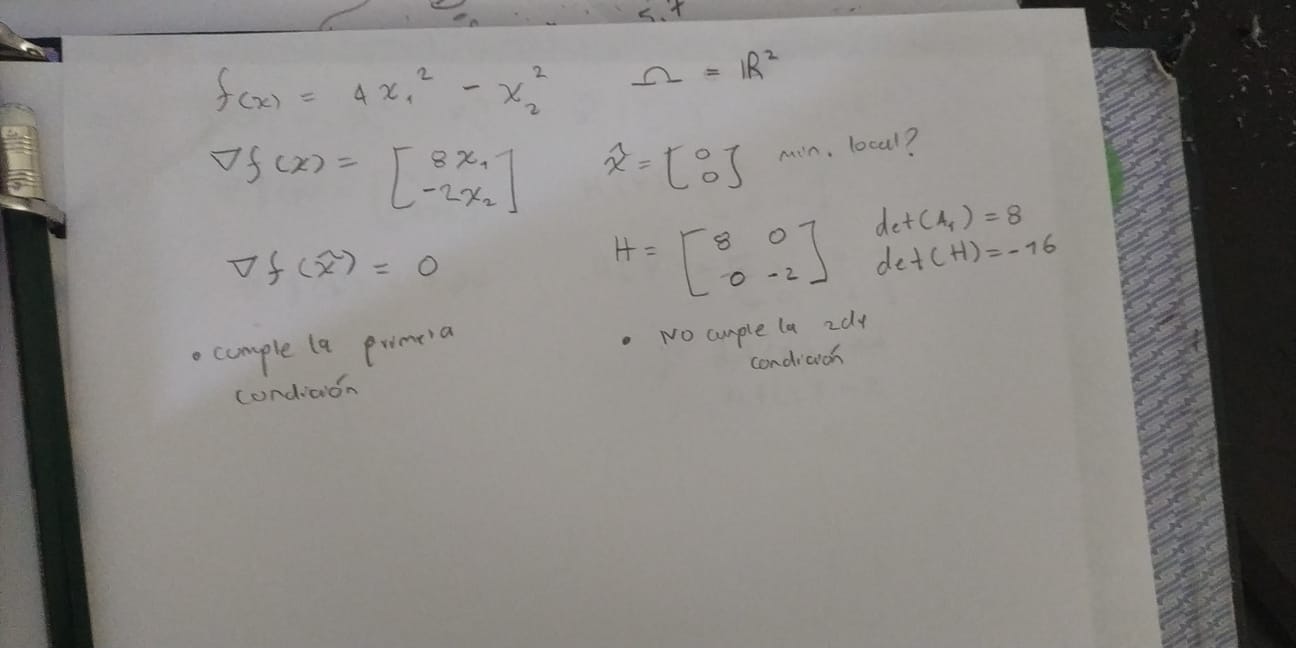 s.t
f(x) = 4x₁² - x₂² Ω = ℝ²
∇f(x) = [8x₁ -2x₂] x̂ = [0 0] min. local?
∇f(x̂) = 0 H = [8 0 0 -2] det(A₁) = 8
det(H) = -16
• cumple la primera
condición
• No cumple la 2da
condición